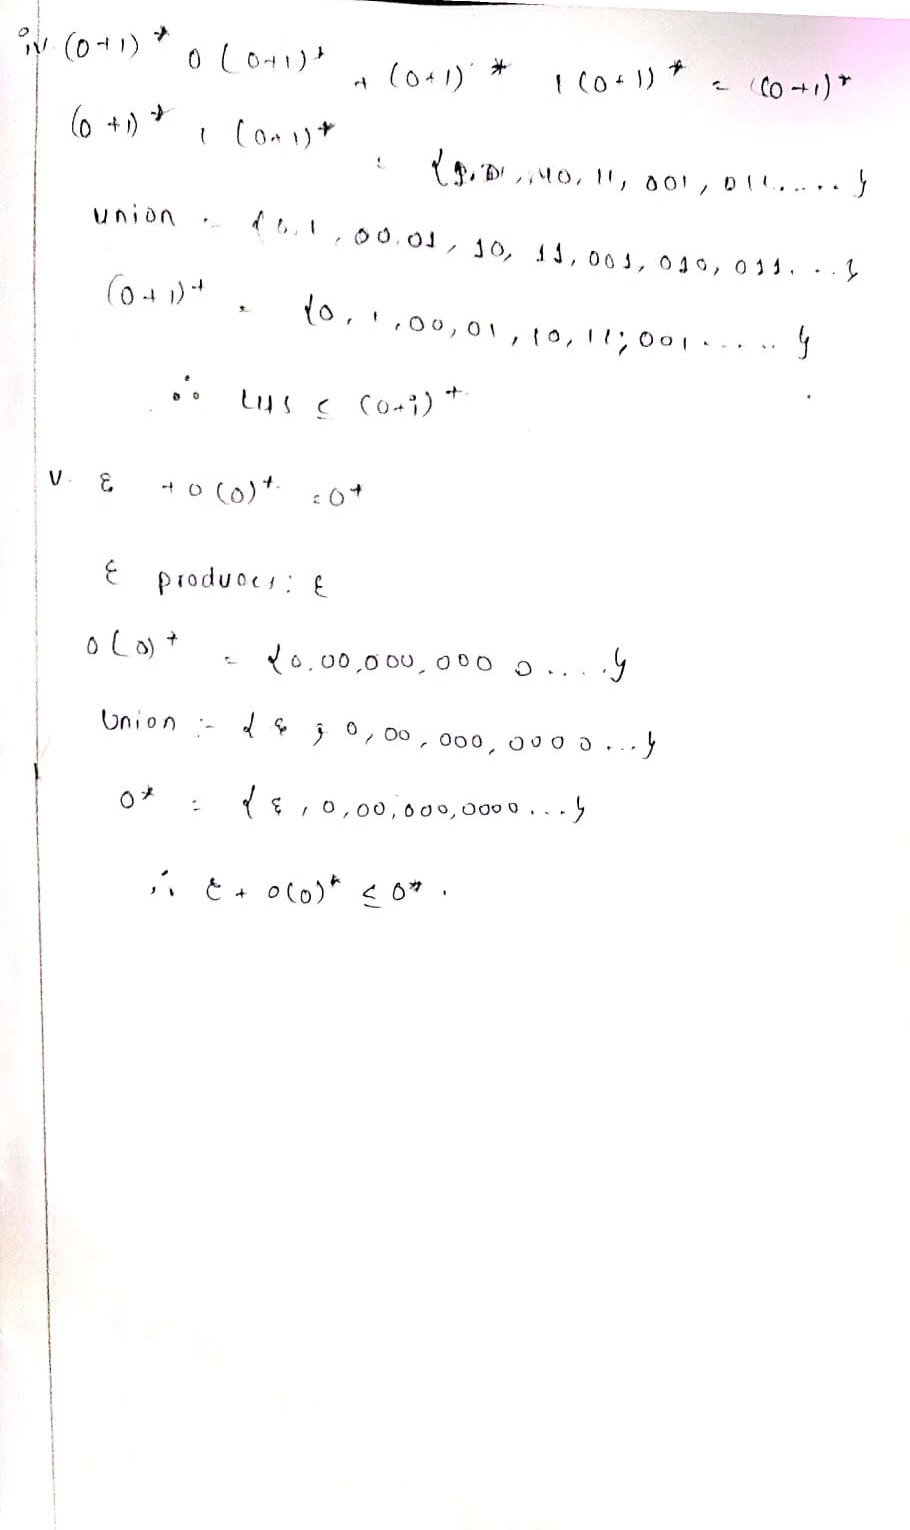 iv. (0+1)* 0 (0+1)* + (0+1)* 1 (0+1)* = (0+1)*
(0+1)* 1 (0+1)* : { 01, 10, 11, 001, 011..... }
union :- {0, 1, 00, 01, 10, 11, 001, 010, 011...}
(0+1)+ = {0, 1, 00, 01, 10, 11, 001......}
∴ LHS ≤ (0+1)+
v. ε + 0(0)+ = 0+
ε produces: ε
0(0)+ = {0, 00, 000, 0000.....}
Union :- {ε, 0, 00, 000, 0000...}
0* = {ε, 0, 00, 000, 0000...}
∴ ε + 0(0)* ≤ 0*.